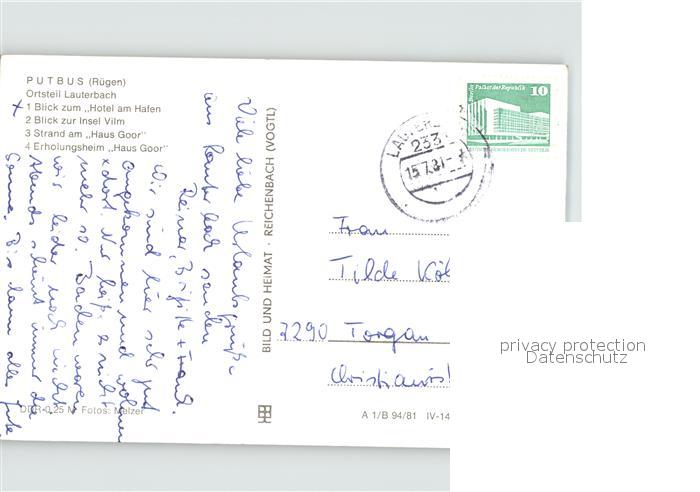 PUTBUS (Rügen)
Ortsteil Lauterbach
x 1 Blick zum „Hotel am Hafen
2 Blick zur Insel Vilm
3 Strand am „Haus Goor"
4 Erholungsheim „Haus Goor"
Viele liebe Urlaubsgrüße
aus Lauterbach senden
Reiner, Brigitte + Frank.
Wir sind hier sehr gut
angekommen und wohnen
x dort. Nur heiß es nicht
mehr so. Baden waren
wir leider noch nicht.
Abends scheint immer die
Sonne. Bis dann alles Gute
DDR 0,25 M Fotos: Melzer
BILD UND HEIMAT · REICHENBACH (VOGTL)
A 1/B 94/81 IV-14
Palast der Republik 10
233
15.7.81
Frau
Tilde
7290 Torgau
privacy protection
Datenschutz